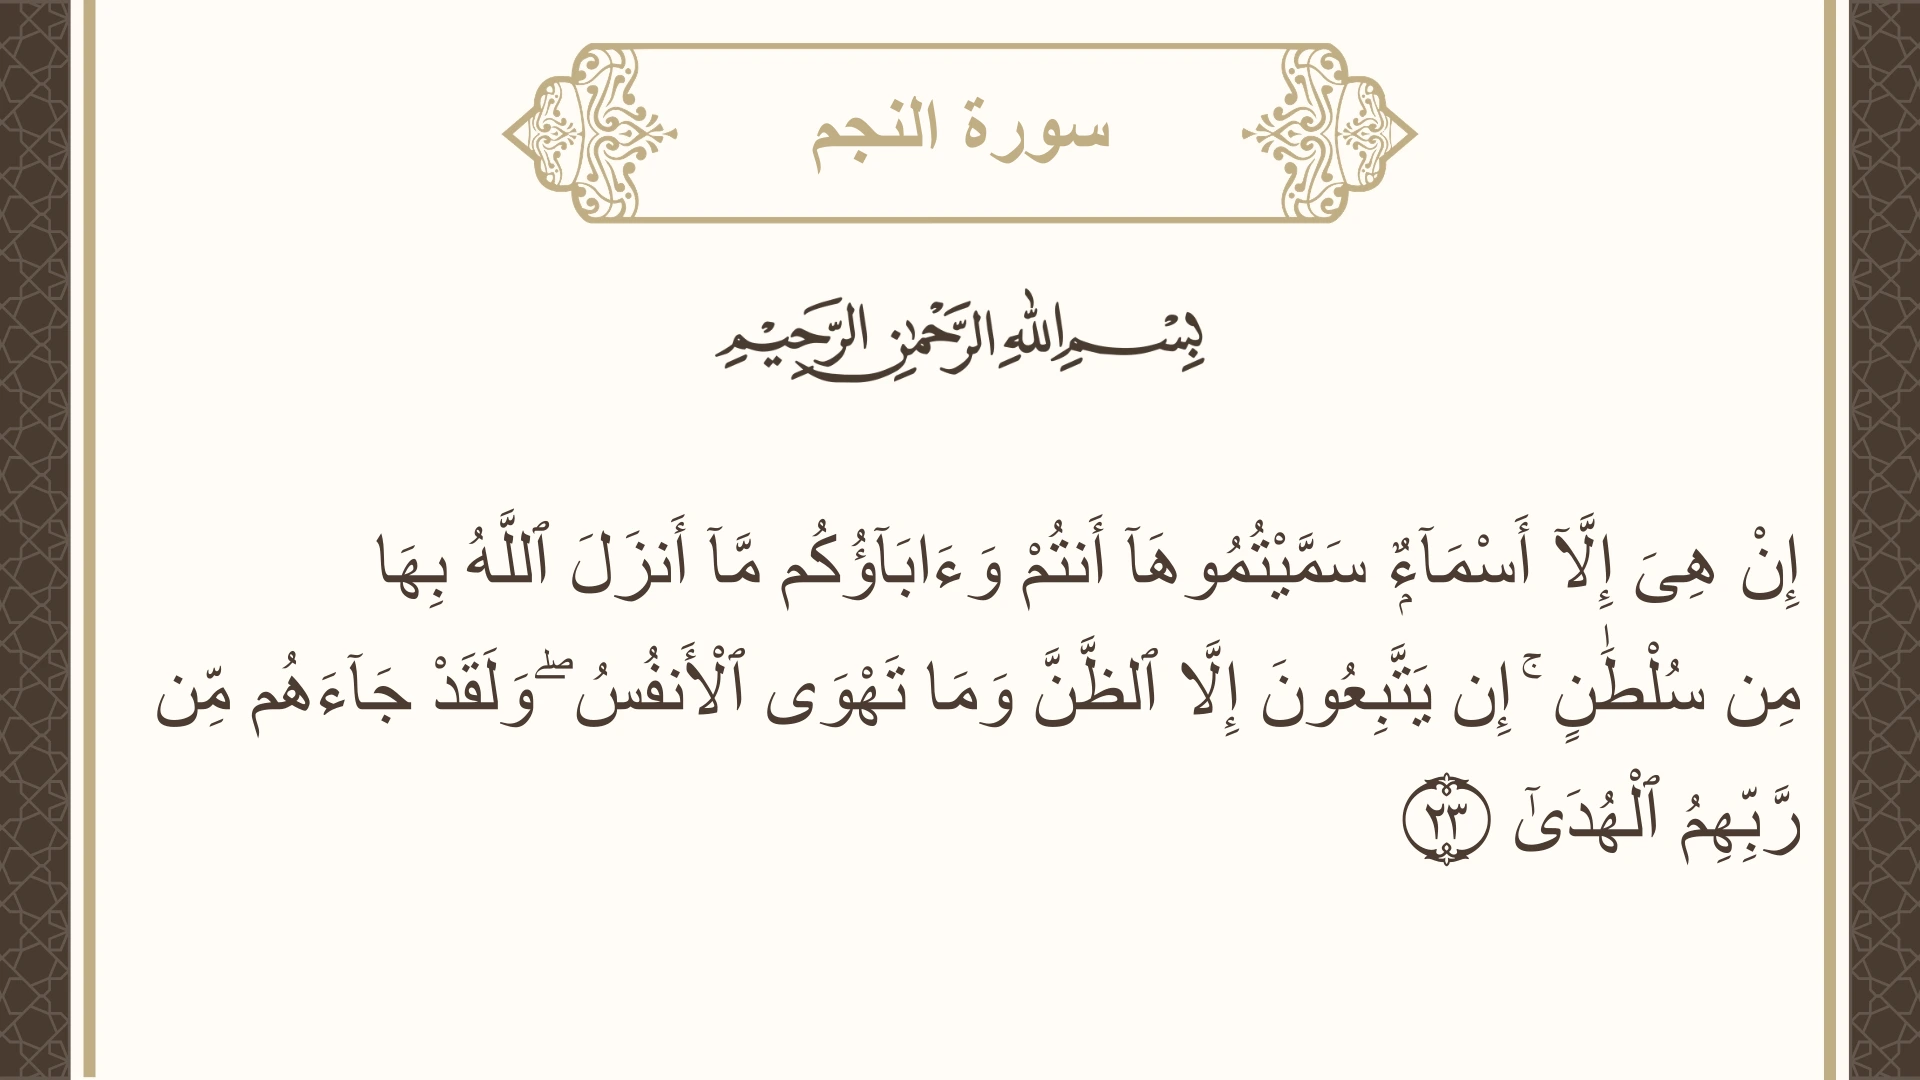 سورة النجم
بِسْمِ اللهِ الرَّحْمٰنِ الرَّحِيْمِ
إِنْ هِىَ إِلَّآ أَسْمَآءٌۭ سَمَّيْتُمُوهَآ أَنتُمْ وَءَابَآؤُكُم مَّآ أَنزَلَ ٱللَّهُ بِهَا
مِن سُلْطَـٰنٍ ۚ إِن يَتَّبِعُونَ إِلَّا ٱلظَّنَّ وَمَا تَهْوَى ٱلْأَنفُسُ ۖ وَلَقَدْ جَآءَهُم مِّن
رَّبِّهِمُ ٱلْهُدَىٰٓ ٢٣